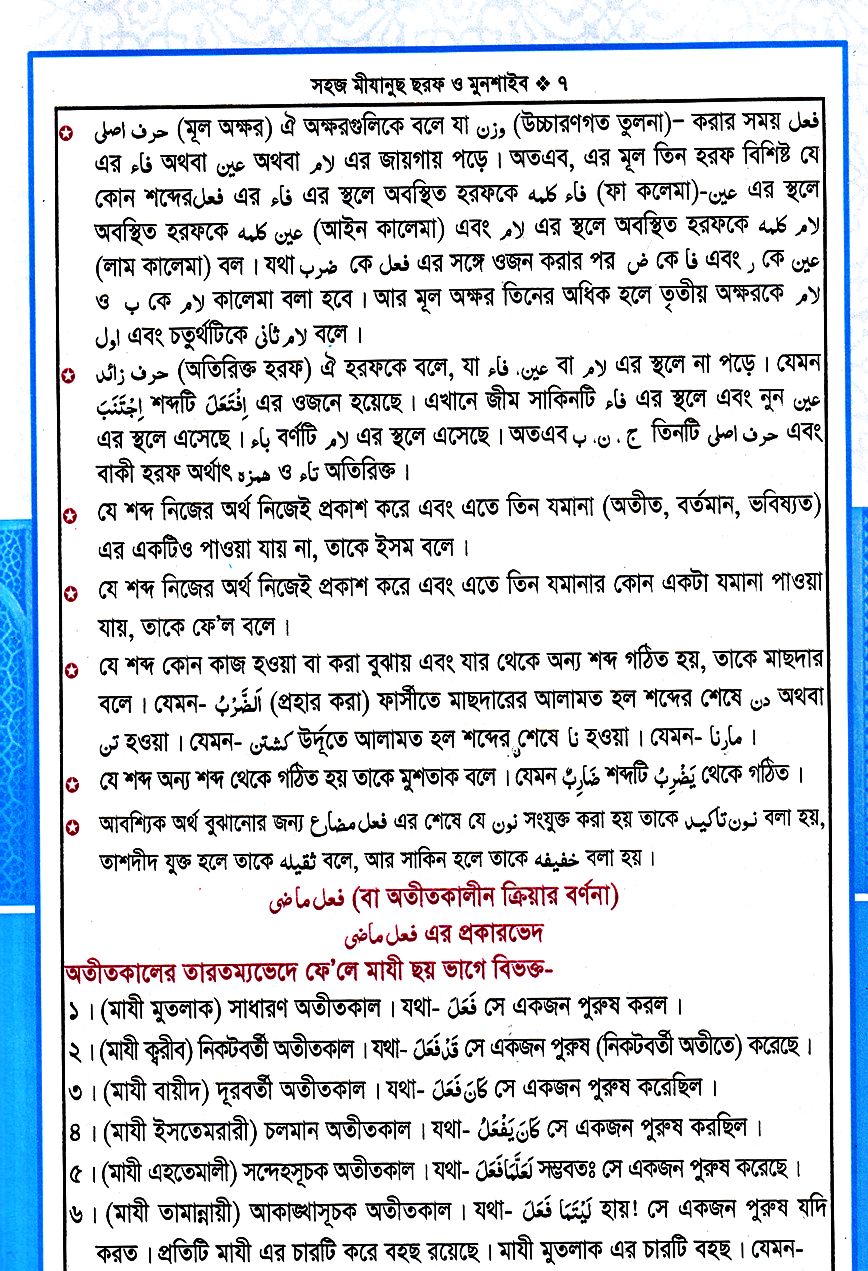 সহজ মীযানুছ ছরফ ও মুনশাইব ❖ ৭
✪ حرف اصلی (মূল অক্ষর) ঐ অক্ষরগুলিকে বলে যা وزن (উচ্চারণগত তুলনা)– করার সময় فعل
এর فاء অথবা عین অথবা لام এর জায়গায় পড়ে। অতএব, এর মূল তিন হরফ বিশিষ্ট যে
কোন শব্দের فعل এর فاء এর স্থলে অবস্থিত হরফকে فاء کلمه (ফা কলেমা)-عین এর স্থলে
অবস্থিত হরফকে عین کلمه (আইন কালেমা) এবং لام এর স্থলে অবস্থিত হরফকে لام کلمه
(লাম কালেমা) বল। যথা ضرب কে فعل এর সঙ্গে ওজন করার পর ض কে فا এবং ر কে عین
ও ب কে لام কালেমা বলা হবে। আর মূল অক্ষর তিনের অধিক হলে তৃতীয় অক্ষরকে لام
اول এবং চতুর্থটিকে لام ثانی বলে।
✪ حرف زائد (অতিরিক্ত হরফ) ঐ হরফকে বলে, যা عین، فاء বা لام এর স্থলে না পড়ে। যেমন
اِجْتَنَبَ শব্দটি اِفْتَعَلَ এর ওজনে হয়েছে। এখানে জীম সাকিনটি فاء এর স্থলে এবং নুন عین
এর স্থলে এসেছে। باء বর্ণটি لام এর স্থলে এসেছে। অতএব ج ، ن، ب তিনটি حرف اصلی এবং
বাকী হরফ অর্থাৎ همزه ও تاء অতিরিক্ত।
✪ যে শব্দ নিজের অর্থ নিজেই প্রকাশ করে এবং এতে তিন যমানা (অতীত, বর্তমান, ভবিষ্যত)
এর একটিও পাওয়া যায় না, তাকে ইসম বলে।
✪ যে শব্দ নিজের অর্থ নিজেই প্রকাশ করে এবং এতে তিন যমানার কোন একটা যমানা পাওয়া
যায়, তাকে ফে'ল বলে।
✪ যে শব্দ কোন কাজ হওয়া বা করা বুঝায় এবং যার থেকে অন্য শব্দ গঠিত হয়, তাকে মাছদার
বলে। যেমন- اَلضَّرْبُ (প্রহার করা) ফার্সীতে মাছদারের আলামত হল শব্দের শেষে دن অথবা
تن হওয়া। যেমন- کشتن উর্দূতে আলামত হল শব্দের শেষে نا হওয়া। যেমন- مارنا।
✪ যে শব্দ অন্য শব্দ থেকে গঠিত হয় তাকে মুশতাক বলে। যেমন ضَارِبٌ শব্দটি يَضْرِبُ থেকে গঠিত।
✪ আবশ্যিক অর্থ বুঝানোর জন্য فعل مضارع এর শেষে যে نون সংযুক্ত করা হয় তাকে نون تاکید বলা হয়,
তাশদীদ যুক্ত হলে তাকে ثقیله বলে, আর সাকিন হলে তাকে خفیفه বলা হয়।
فعل ماضی (বা অতীতকালীন ক্রিয়ার বর্ণনা)
فعل ماضی এর প্রকারভেদ
অতীতকালের তারতম্যভেদে ফে'লে মাযী ছয় ভাগে বিভক্ত-
১। (মাযী মুতলাক) সাধারণ অতীতকাল। যথা- فَعَلَ সে একজন পুরুষ করল।
২। (মাযী ক্বরীব) নিকটবর্তী অতীতকাল। যথা- قَدْ فَعَلَ সে একজন পুরুষ (নিকটবর্তী অতীতে) করেছে।
৩। (মাযী বায়ীদ) দূরবর্তী অতীতকাল। যথা- كَانَ فَعَلَ সে একজন পুরুষ করেছিল।
৪। (মাযী ইসতেমরারী) চলমান অতীতকাল। যথা- كَانَ يَفْعَلُ সে একজন পুরুষ করছিল।
৫। (মাযী এহতেমালী) সন্দেহসূচক অতীতকাল। যথা- لَعَلَّمَا فَعَلَ সম্ভবতঃ সে একজন পুরুষ করেছে।
৬। (মাযী তামান্নায়ী) আকাঙ্খাসূচক অতীতকাল। যথা- لَيْتَمَا فَعَلَ হায়! সে একজন পুরুষ যদি
করত। প্রতিটি মাযী এর চারটি করে বহছ রয়েছে। মাযী মুতলাক এর চারটি বহছ। যেমন-